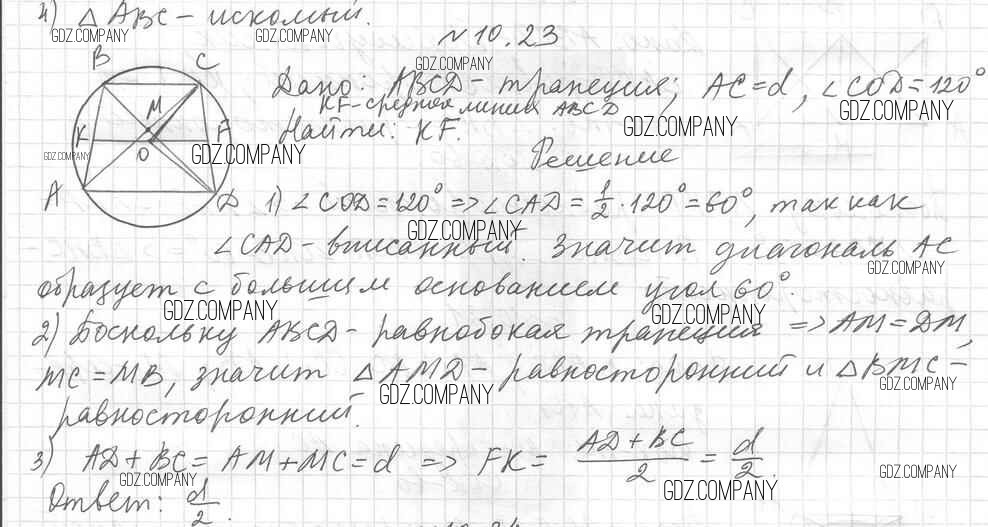 4) △ABC – искомый.
GDZ.COMPANY GDZ.COMPANY
№10.23
GDZ.COMPANY
B C
Дано: ABCD – трапеция; AC = d, ∠COD = 120°
KF – средняя линия ABCD
GDZ.COMPANY GDZ.COMPANY
M
Найти: KF.
K F
O
GDZ.COMPANY GDZ.COMPANY
Решение
A D
1) ∠COD = 120° => ∠CAD = 1/2 · 120° = 60°, так как
GDZ.COMPANY
∠CAD – вписанный. Значит диагональ AC
GDZ.COMPANY
образует с большим основанием угол 60°.
GDZ.COMPANY GDZ.COMPANY
2) Поскольку ABCD – равнобокая трапеция => AM = DM,
MC = MB, значит △AMD – равносторонний и △BMC –
GDZ.COMPANY GDZ.COMPANY
равносторонний.
3) AD + BC = AM + MC = d => FK = (AD + BC)/2 = d/2.
GDZ.COMPANY GDZ.COMPANY GDZ.COMPANY
Ответ: d/2.